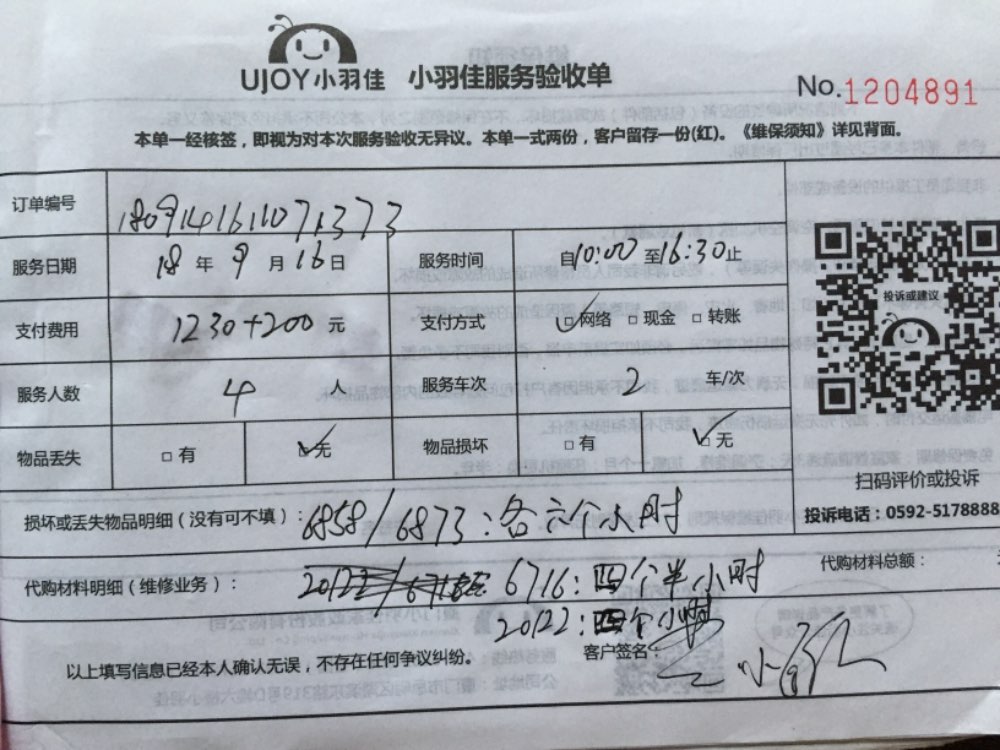 UJOY小羽佳 小羽佳服务验收单
No.1204891
本单一经核签，即视为对本次服务验收无异议。本单一式两份，客户留存一份(红)。《维保须知》详见背面。
订单编号 1809141611071373
服务日期 18 年 9 月 16 日 服务时间 自10:00 至16:30止
支付费用 1230+200 元 支付方式 网络 现金 转账
投诉或建议
服务人数 4 人 服务车次 2 车/次
物品丢失 有 无 物品损坏 有 无
扫码评价或投诉
投诉电话：0592-5178888
损坏或丢失物品明细（没有可不填）：6858/6873：各六个小时
代购材料明细（维修业务）： 6716：四个半小时 代购材料总额：
20122：四个小时
以上填写信息已经本人确认无误，不存在任何争议纠纷。 客户签名：